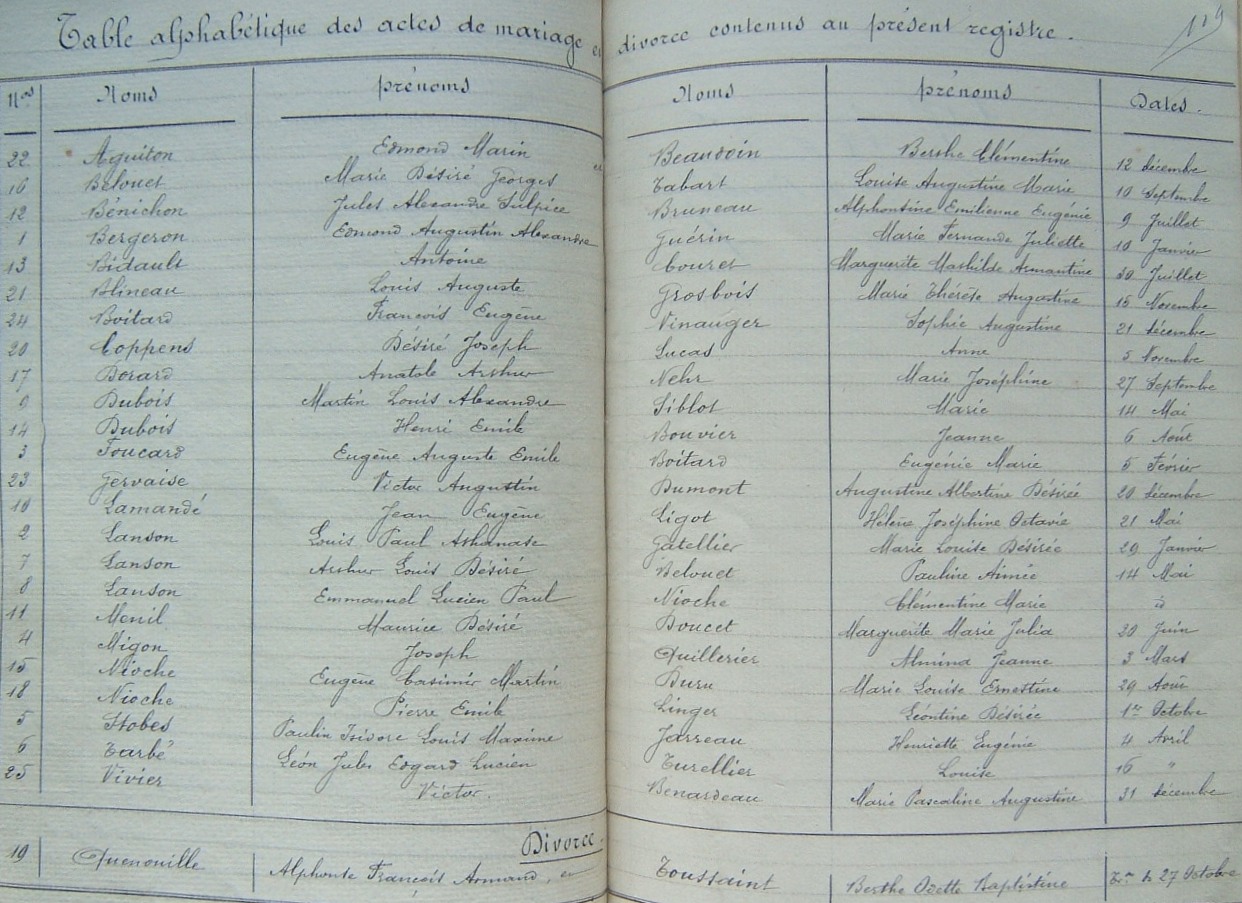 Table alphabétique des actes de mariage et divorce contenus au présent registre. 119
Nos Noms prénoms Noms prénoms Dates.
22 Aguiton Edmond Marin et Beaudoin Berthe Clémentine 12 décembre
16 Belouet Marie Désiré Georges Tabart Louise Augustine Marie 10 Septembre
12 Bénichon Jules Alexandre Sulpice Bruneau Alphonsine Emilienne Eugénie 9 Juillet
1 Bergeron Edmond Augustin Alexandre Guérin Marie Fernande Juliette 10 Janvier
13 Bidault Antoine Couret Marguerite Mathilde Armantine 30 Juillet
21 Blineau Louis Auguste Grosbois Marie Thérèse Augustine 15 Novembre
24 Boitard Francois Eugène Vinauger Sophie Augustine 21 décembre
20 Coppens Désiré Joseph Lucas Anne 5 Novembre
17 Dorard Anatole Arthur Nehr Marie Joséphine 27 Septembre
9 Dubois Martin Louis Alexandre Siblot Marie 14 Mai
14 Dubois Henri Emile Bouvier Jeanne 6 Août
3 Foucard Eugène Auguste Emile Boitard Eugénie Marie 5 Février
23 Gervaise Victor Augustin Dumont Augustine Albertine Désirée 20 décembre
10 Lamandé Jean Eugène Ligot Hélène Joséphine Octavie 21 Mai
2 Lanson Louis Paul Athanase Gatellier Marie Louise Désirée 29 Janvier
7 Lanson Arthur Louis Désiré Belouet Pauline Aimée 14 Mai
8 Lanson Emmanuel Lucien Paul Nioche Clémentine Marie id
11 Menil Maurice Désiré Doucet Marguerite Marie Julia 20 Juin
4 Migon Joseph Quillerier Almina Jeanne 3 Mars
15 Nioche Eugène Casimir Martin Buru Marie Louise Ernestine 29 Août
18 Nioche Pierre Emile Linger Léontine Désirée 1er Octobre
5 Stobes Paulin Isidore Louis Maxime Jarreau Henriette Eugénie 4 Avril
6 Tarbé Léon Jules Edgard Lucien Turellier Louise 16 "
25 Vivier Victor. Benardeau Marie Pascaline Augustine 31 décembre
Divorce.
19 Quenouille Alphonse François Armand, et Toussaint Berthe Ozette Baptistine 27 Octobre